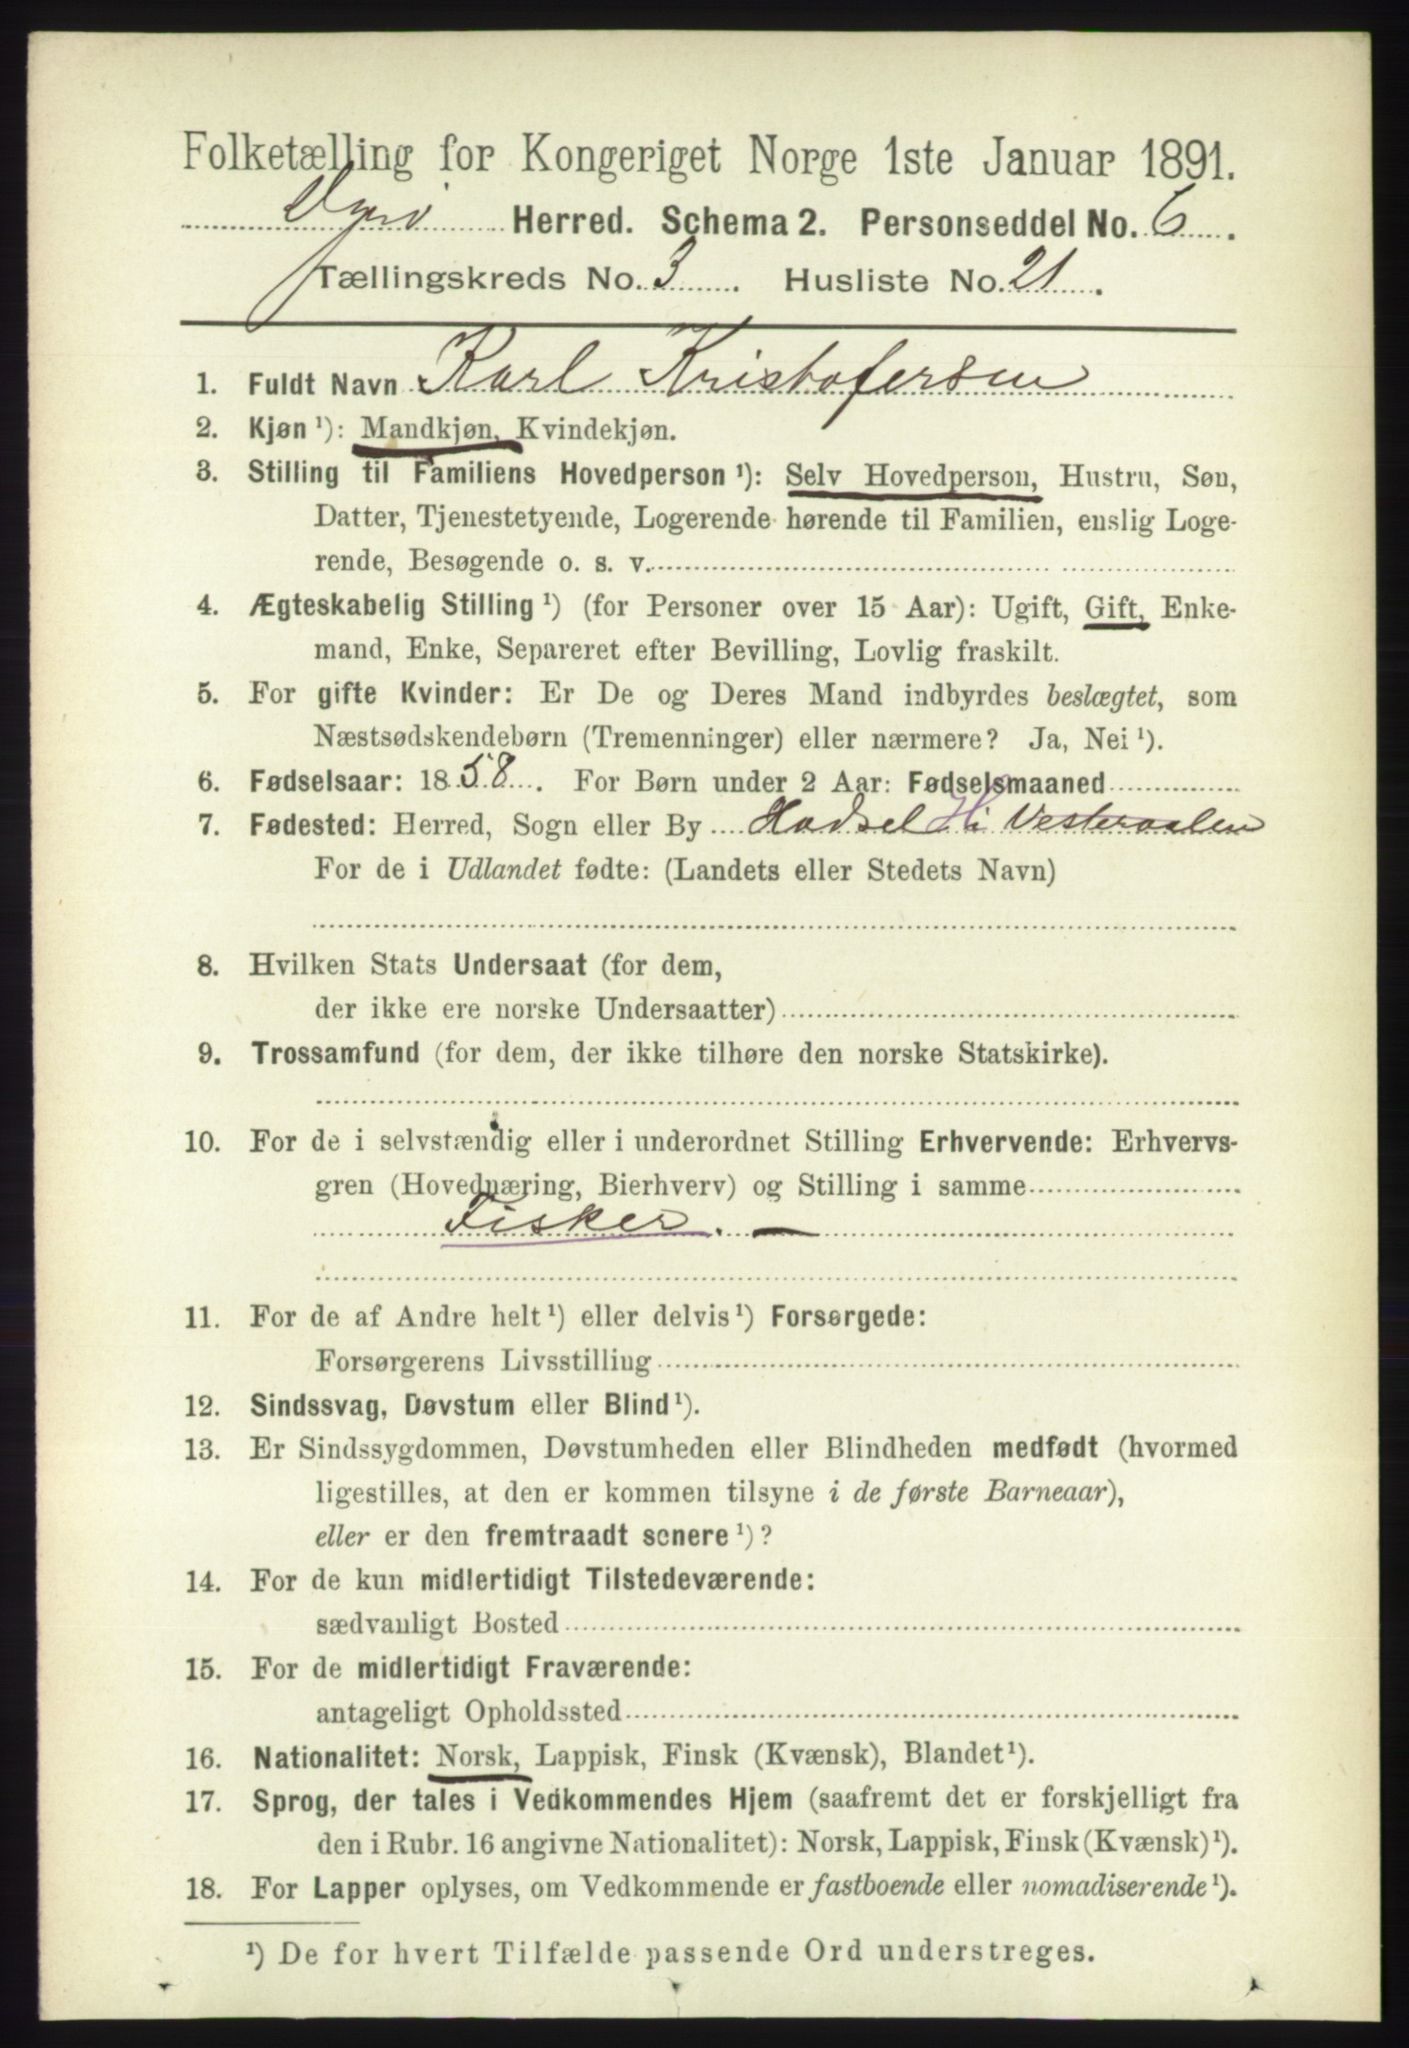 Folketælling for Kongeriget Norge 1ste Januar 1891.
Dyrø Herred. Schema 2. Personseddel No. 6.
Tællingskreds No. 3. Husliste No. 21.
1. Fuldt Navn Karl Kristofersen
2. Kjøn ¹): Mandkjøn, Kvindekjøn.
3. Stilling til Familiens Hovedperson ¹): Selv Hovedperson, Hustru, Søn,
Datter, Tjenestetyende, Logerende hørende til Familien, enslig Loge-
rende, Besøgende o. s. v.
4. Ægteskabelig Stilling ¹) (for Personer over 15 Aar): Ugift, Gift, Enke-
mand, Enke, Separeret efter Bevilling, Lovlig fraskilt.
5. For gifte Kvinder: Er De og Deres Mand indbyrdes beslægtet, som
Næstsødskendebørn (Tremenninger) eller nærmere? Ja, Nei ¹).
6. Fødselsaar: 1858. For Børn under 2 Aar: Fødselsmaaned
7. Fødested: Herred, Sogn eller By Hadsel H i Vesteraalen
For de i Udlandet fødte: (Landets eller Stedets Navn)
8. Hvilken Stats Undersaat (for dem,
der ikke ere norske Undersaatter)
9. Trossamfund (for dem, der ikke tilhøre den norske Statskirke).
10. For de i selvstændig eller i underordnet Stilling Erhvervende: Erhvervs-
gren (Hovednæring, Bierhverv) og Stilling i samme
Fisker. —
11. For de af Andre helt ¹) eller delvis ¹) Forsørgede:
Forsørgerens Livsstilling
12. Sindssvag, Døvstum eller Blind ¹).
13. Er Sindssygdommen, Døvstumheden eller Blindheden medfødt (hvormed
ligestilles, at den er kommen tilsyne i de første Barneaar),
eller er den fremtraadt senere ¹)?
14. For de kun midlertidigt Tilstedeværende:
sædvanligt Bosted
15. For de midlertidigt Fraværende:
antageligt Opholdssted
16. Nationalitet: Norsk, Lappisk, Finsk (Kvænsk), Blandet ¹).
17. Sprog, der tales i Vedkommendes Hjem (saafremt det er forskjelligt fra
den i Rubr. 16 angivne Nationalitet): Norsk, Lappisk, Finsk (Kvænsk) ¹).
18. For Lapper oplyses, om Vedkommende er fastboende eller nomadiserende ¹).
¹) De for hvert Tilfælde passende Ord understreges.